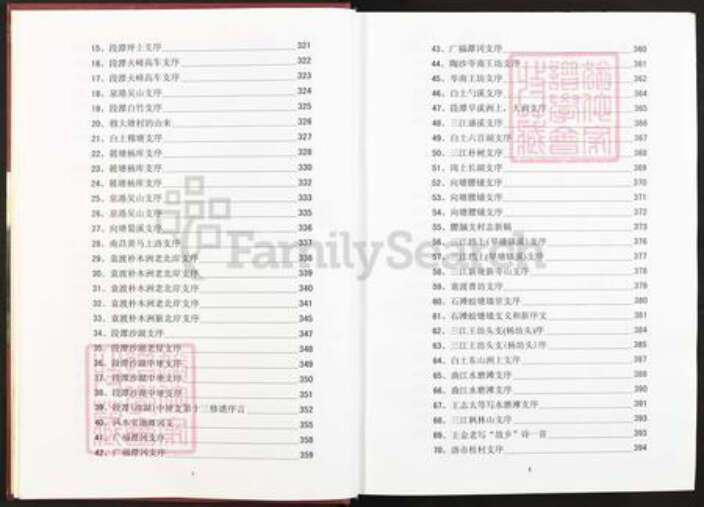 15、段潭坪上支序 321
16、段潭火峰高车支序 322
17、段潭火峰高车支序 323
18、泉港吴山支序 324
19、段潭白竹支序 325
20、魏大塘村的由来 326
21、白土棉塘支序 327
22、筱塘杨库支序 328
23、筱塘杨库支序 330
24、筱塘杨库支序 332
25、泉港吴山支序 333
26、泉港吴山支序 335
27、向塘蜀溪支序 336
28、南昌黄马上洛支序 337
29、袁渡朴木洲老北岸支序 338
30、袁渡朴木洲老北岸支序 339
31、袁渡朴木洲老北岸支序 340
32、袁渡朴木洲老北岸支序 341
33、袁渡朴木洲新北岸支序 345
34、段潭沙湖支序 347
35、段潭沙湖老屋支序 348
36、段潭沙湖中坤支序 349
37、段潭沙湖中坤支序 350
38、段潭沙湖中坤支序 351
39、段潭(沙湖)中坤支第十三修谱序言 352
40、 355
41、广福潭冈支序 358
42、广福潭冈支序 359
43、广福潭冈支序 360
44、陶沙岑南王坊支序 361
45、岑南王坊支序 362
46、白土勺溪支序 364
47、段潭旱溪洲上、大府支序 365
48、三江潘溪支序 366
49、白土六百湖支序 367
50、三江朴树支序 368
51、岗上长湖支序 369
52、向塘腰塘支序 370
53、向塘腰塘支序 371
54、向塘腰塘支序 372
55、支村志新稿 373
56、三江垱上(旱塘镇溪)支序 376
57、三江垱上(旱塘镇溪)支序 377
58、支序 378
59、袁渡曹坊支序 379
60、石滩蛟塘墙里支序 380
61、石滩蛟塘墙支义和新序文 381
62、三江王坊头支(杨坊头)序 384
63、三江王坊头支(杨坊头)序 385
64、白土东山洲上支序 386
65、曲江水磨滩支序 388
66、曲江水磨滩支序 390
67、王志大等写水磨滩支序 391
68、三江枫林山支序 392
69、王金老写“故乡”诗一首 393
70、洛市桂村支序 394
FamilySearch